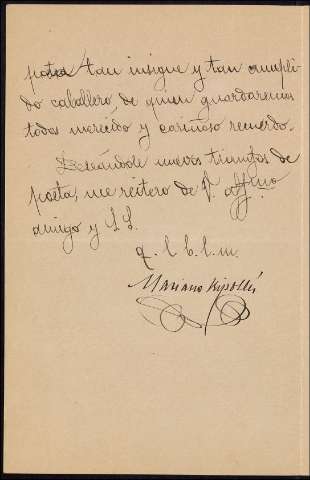 poeta tan insigne y tan cumpli-
do caballero, de quien guardaremos
todos merecido y cariñoso recuerdo.
Deseándole nuevos triunfos de
poeta, me reitero de V. affmo
amigo y S. S.
q. l. b. l. m.
Mariano Ripollés